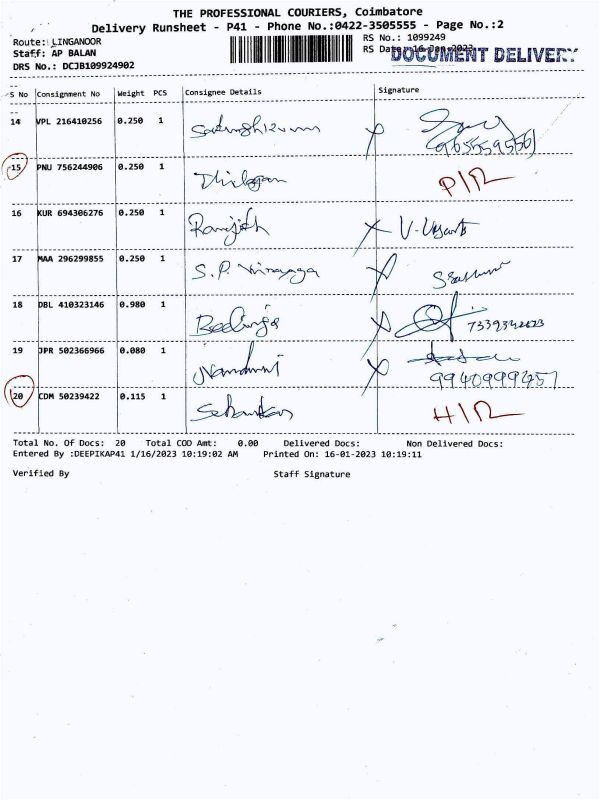 THE PROFESSIONAL COURIERS, Coimbatore
Delivery Runsheet - P41 - Phone No.:0422-3505555 - Page No.:2
Route: LINGANOOR
RS No.: 1099249
Staff: AP BALAN
RS Date: 16 Jan 2023
DOCUMENT DELIVERY
DRS No.: DCJB109924902
S No Consignment No Weight PCS Consignee Details Signature
14 VPL 216410256 0.250 1
15 PNU 756244906 0.250 1 P/R
16 KUR 694306276 0.250 1 Ranjith X
17 MAA 296299855 0.250 1 S.P. Vinayaga X
18 DBL 410323146 0.980 1 X
19 JPR 502366966 0.080 1 Nandhini X
20 CDM 50239422 0.115 1 H/R
Total No. Of Docs: 20 Total COD Amt: 0.00 Delivered Docs: Non Delivered Docs:
Entered By :DEEPIKAP41 1/16/2023 10:19:02 AM Printed On: 16-01-2023 10:19:11
Verified By Staff Signature